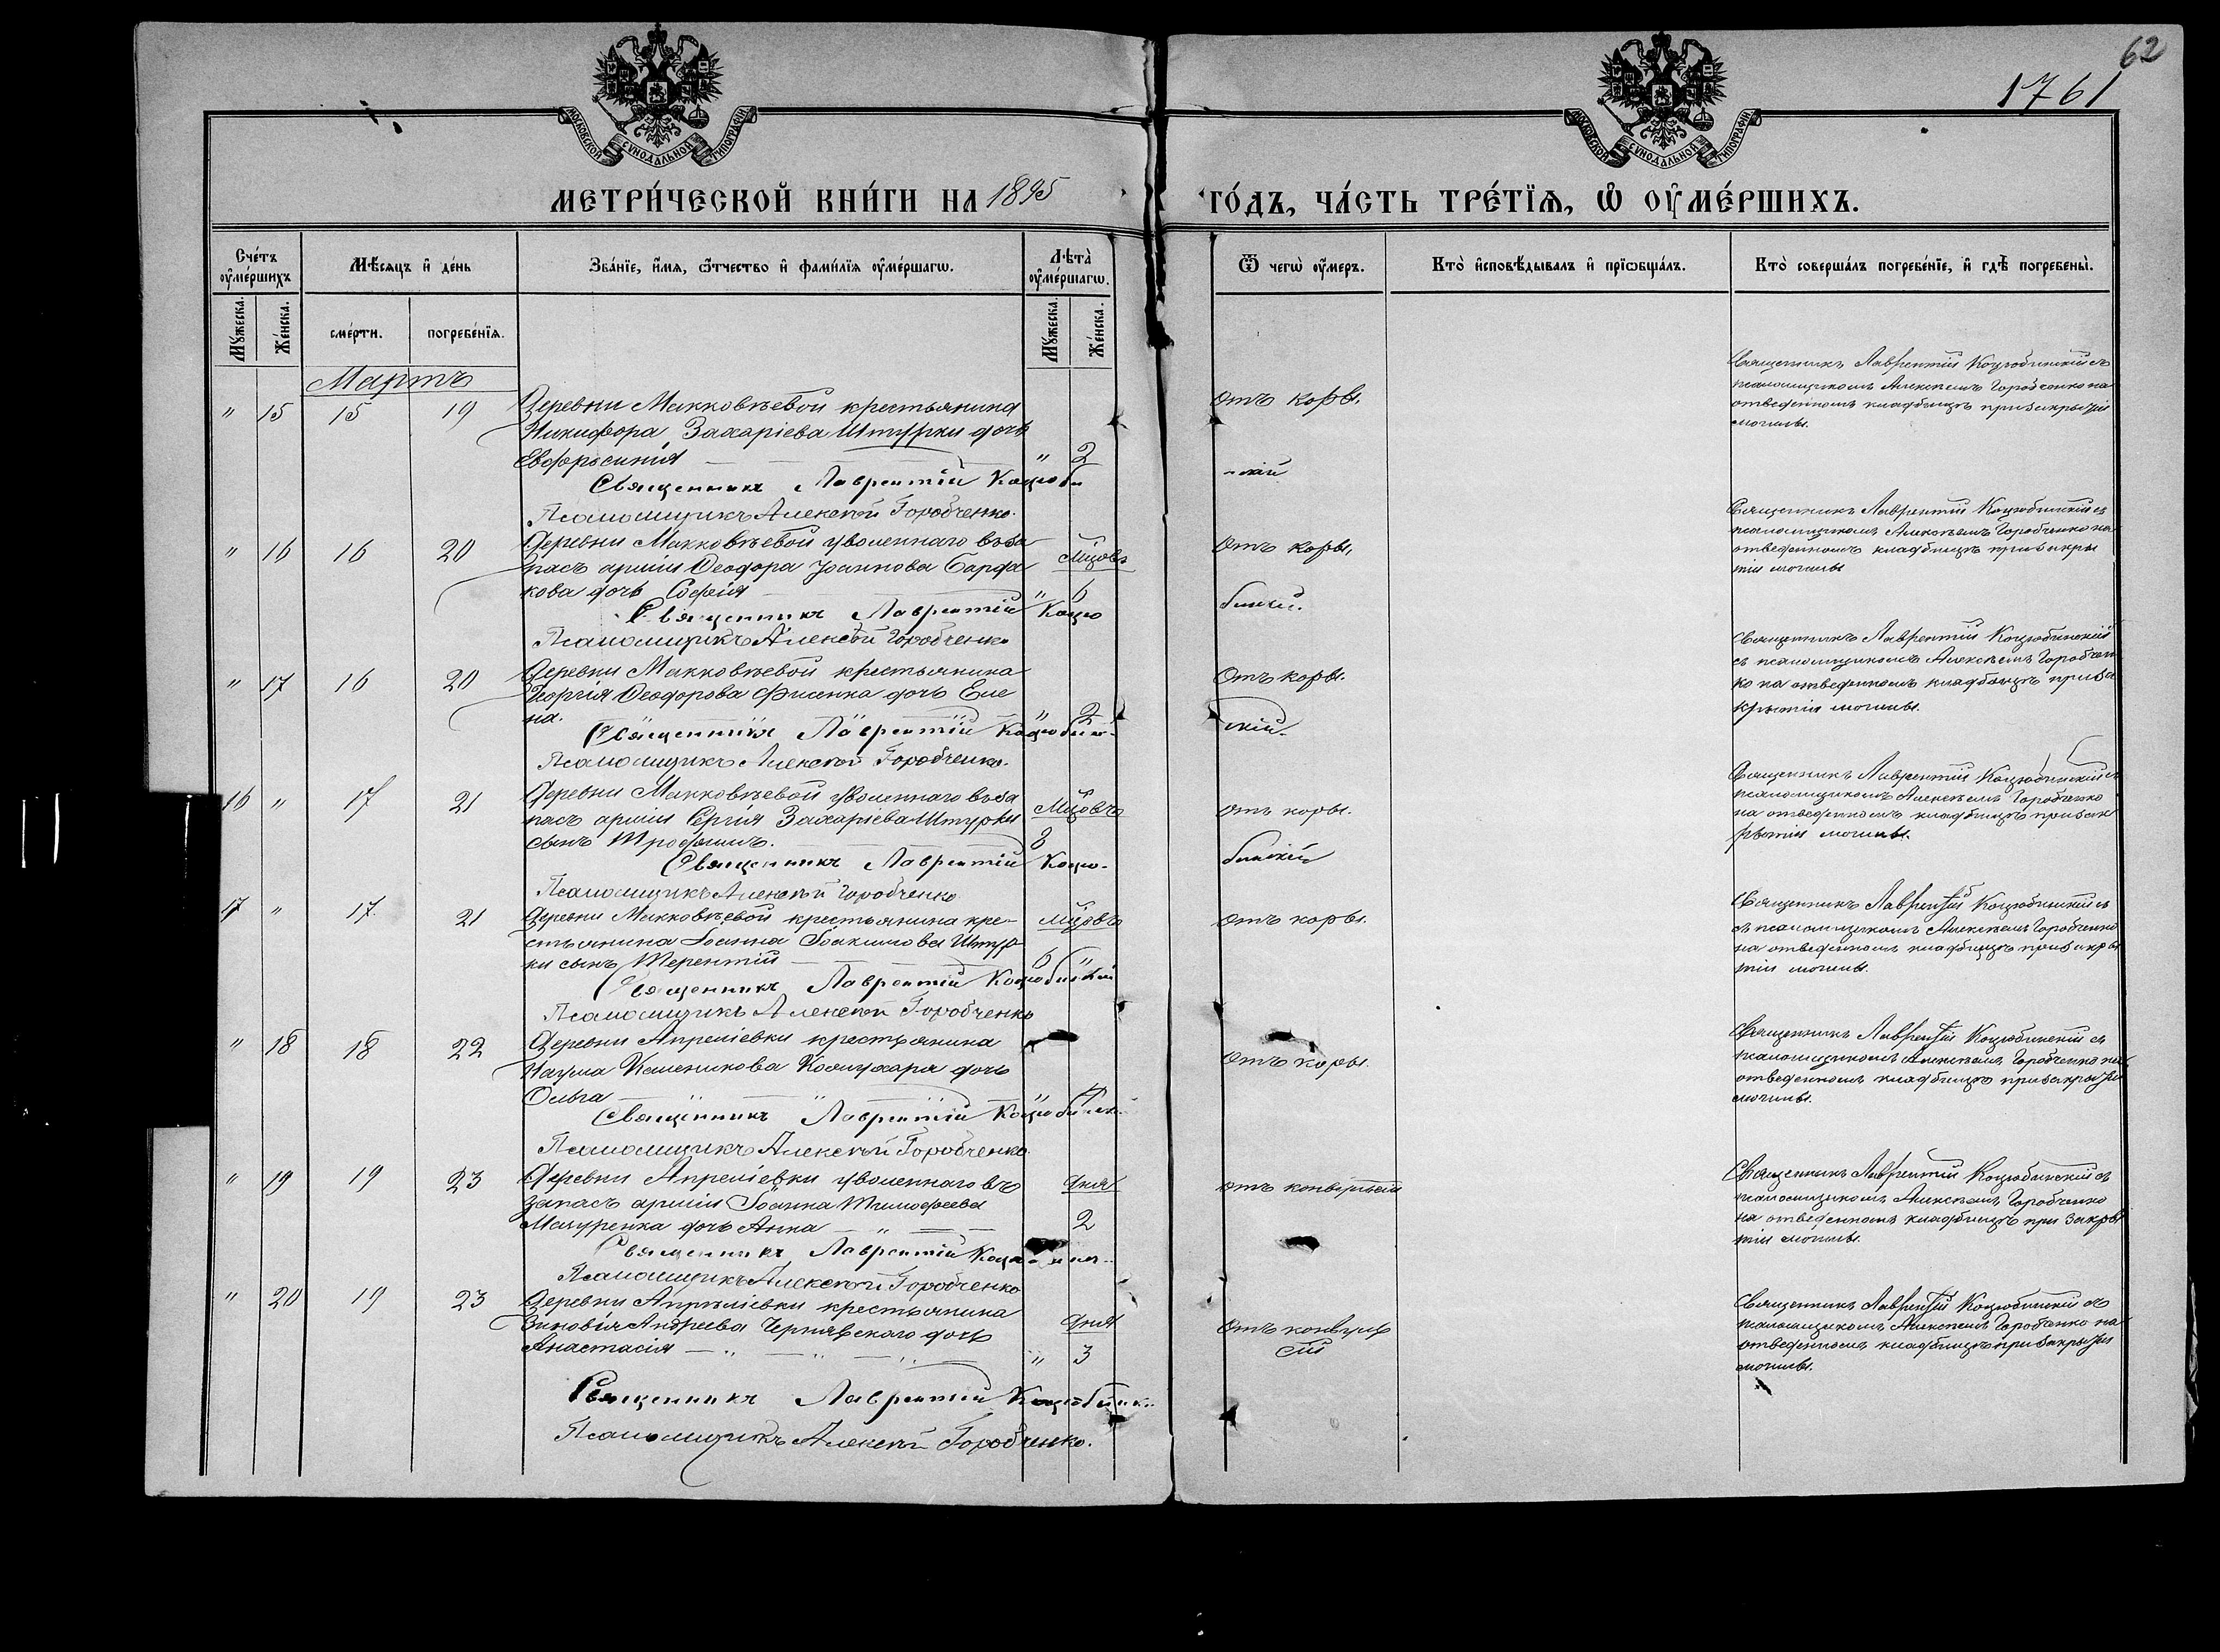 62
1761
МОСКОВСКОЙ СѴНОДАЛЬНОЙ ТИПОГРАФІИ
МОСКОВСКОЙ СѴНОДАЛЬНОЙ ТИПОГРАФІИ
МЕТРИ́ЧЕСКОЙ КНИ́ГИ НА 1895 ГО́ДЪ, ЧА́СТЬ ТРЕ́ТЇѦ, Ѡ҆ ОУ҆МЕ́РШИХЪ.
Сче́тъ оу҆ме́ршихъ
Мꙋжеска.
Же́нска.
Мѣ́сяцъ и҆ де́нь
сме́рти.
погребе́нїѧ.
Зва́нїе, и҆́мѧ, ѻ҆́тчество и҆ фами́лїѧ оу҆ме́ршагѡ.
Лѣта̀ оу҆ме́ршагѡ.
Мꙋжеска.
Же́нска.
Ѿ чегѡ̀ оу҆́меръ.
Кто̀ и҆сповѣ́дывалъ и҆ прїѡбща́лъ.
Кто̀ соверша́лъ погребе́нїе, и҆ гдѣ̀ погребены̀.
Мартъ
" 15 15 19 Деревни Макковѣевой крестьянина
Никифора Захаріева Штурки дочь
Евфросинія " 2
отъ кори.
Священникъ Лаврентій Коцюбинскій съ
псаломщикомъ Алексѣемъ Горобченко на
отведенномъ кладбищѣ при закрытіи
могилы.
Священникъ Лаврентій Коцюби
нскій
Псаломщикъ Алексѣй Горобченко.
" 16 16 20 Деревни Макковѣевой уволеннаго въ за
пасъ арміи Ѳеодора Іоаннова
кова дочь Софія " мѣсяцовъ 6
отъ кори,
Священникъ Лаврентій Коцюбинскій съ
псаломщикомъ Алексѣемъ Горобченко на
отведенномъ кладбищѣ при закры
тіи могилы
Священникъ Лаврентій Коцю
бинскій.
Псаломщикъ Алексѣй Горобченко
" 17 16 20 Деревни Макковѣевой крестьянина
Георгія Ѳеодорова Фисенка дочь Еле
на. " 2
Отъ кори.
Священникъ Лаврентій Коцюбинскій
съ псаломщикомъ Алексѣемъ Горобчен
ко на отведенномъ кладбищѣ при за
крытіи могилы.
Священникъ Лаврентій Коцюбин
скій.
Псаломщикъ Алексѣй Горобченко.
16 " 17 21 Деревни Макковѣевой уволеннаго въ за
пасъ арміи Сергія Захаріева Штурки
сынъ Трофимъ. мѣсяцовъ 8
отъ кори.
Священникъ Лаврентій Коцюбинскій съ
псаломщикомъ Алексѣемъ Горобченко
на отведенномъ кладбищѣ при зак
рытіи могилы.
Священникъ Лаврентій Коцю-
бинскій
Псаломщикъ Алексѣй Горобченко
17 " 17. 21 Деревни Макковѣевой крестьянина кре-
стьянина Іоанна Іоакимова Штур
ки сынъ Терентій мѣсяцовъ 6 "
отъ кори.
Священникъ Лаврентій Коцюбинскій съ
съ псаломщикомъ Алексѣемъ Горобченко
на отведенномъ кладбищѣ при закры
тіи могилы.
Священникъ Лаврентій Коцюбинскій
Псаломщикъ Алексѣй Горобченко
" 18 18 22 Деревни Апреліевки крестьянина
Наума дочь
Ольга " 4
отъ кори.
Священникъ Лаврентій Коцюбинскій съ
псаломщикомъ Алексѣемъ Горобченко на
отведенномъ кладбищѣ при закрытіи
могилы.
Священникъ Лаврентій Коцюбинск
Псаломщикъ Алексѣй Горобченко.
" 19 19 23 Деревни Апреліевки уволеннаго въ
запасъ арміи Іоанна Тимофеева
Мазуренка дочь Анна дня 2
отъ конвульсіи
Священникъ Лаврентій Коцюбинскій съ
псаломщикомъ Алексѣемъ Горобченко
на отведенномъ кладбищѣ при закры
тіи могилы.
Священникъ Лаврентій
Псаломщикъ Алексѣй Горобченко
" 20 19 23 Деревни Апрѣліевки крестьянина
Зиновія Андреева Чернявскаго дочь
Анастасія " дня 3
Отъ конвуль
сіи
Священникъ Лаврентій Коцюбинскій съ
псаломщикомъ Алексѣемъ Горобченко на
отведенномъ кладбищѣ при закрытіи
могилы.
Священникъ Лаврентій Коцюбинск
Псаломщикъ Алексѣй Горобченко.